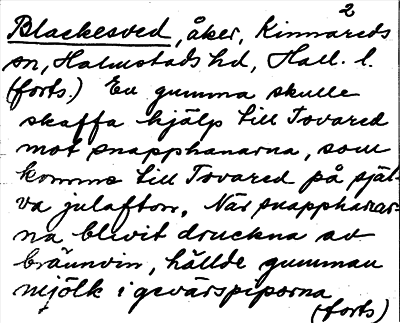 2
Blackesved, åker, Kinnareds
sn, Halmstads hd, Hall. l.
(forts.) En gumma skulle
skaffa hjälp till Tovared
mot snapphanarna, som
komma till Tovared på själ-
va julafton. När snapphanar-
na blivit druckna av
brännvin, hällde gumman
mjölk i gevärspiporna
(forts)